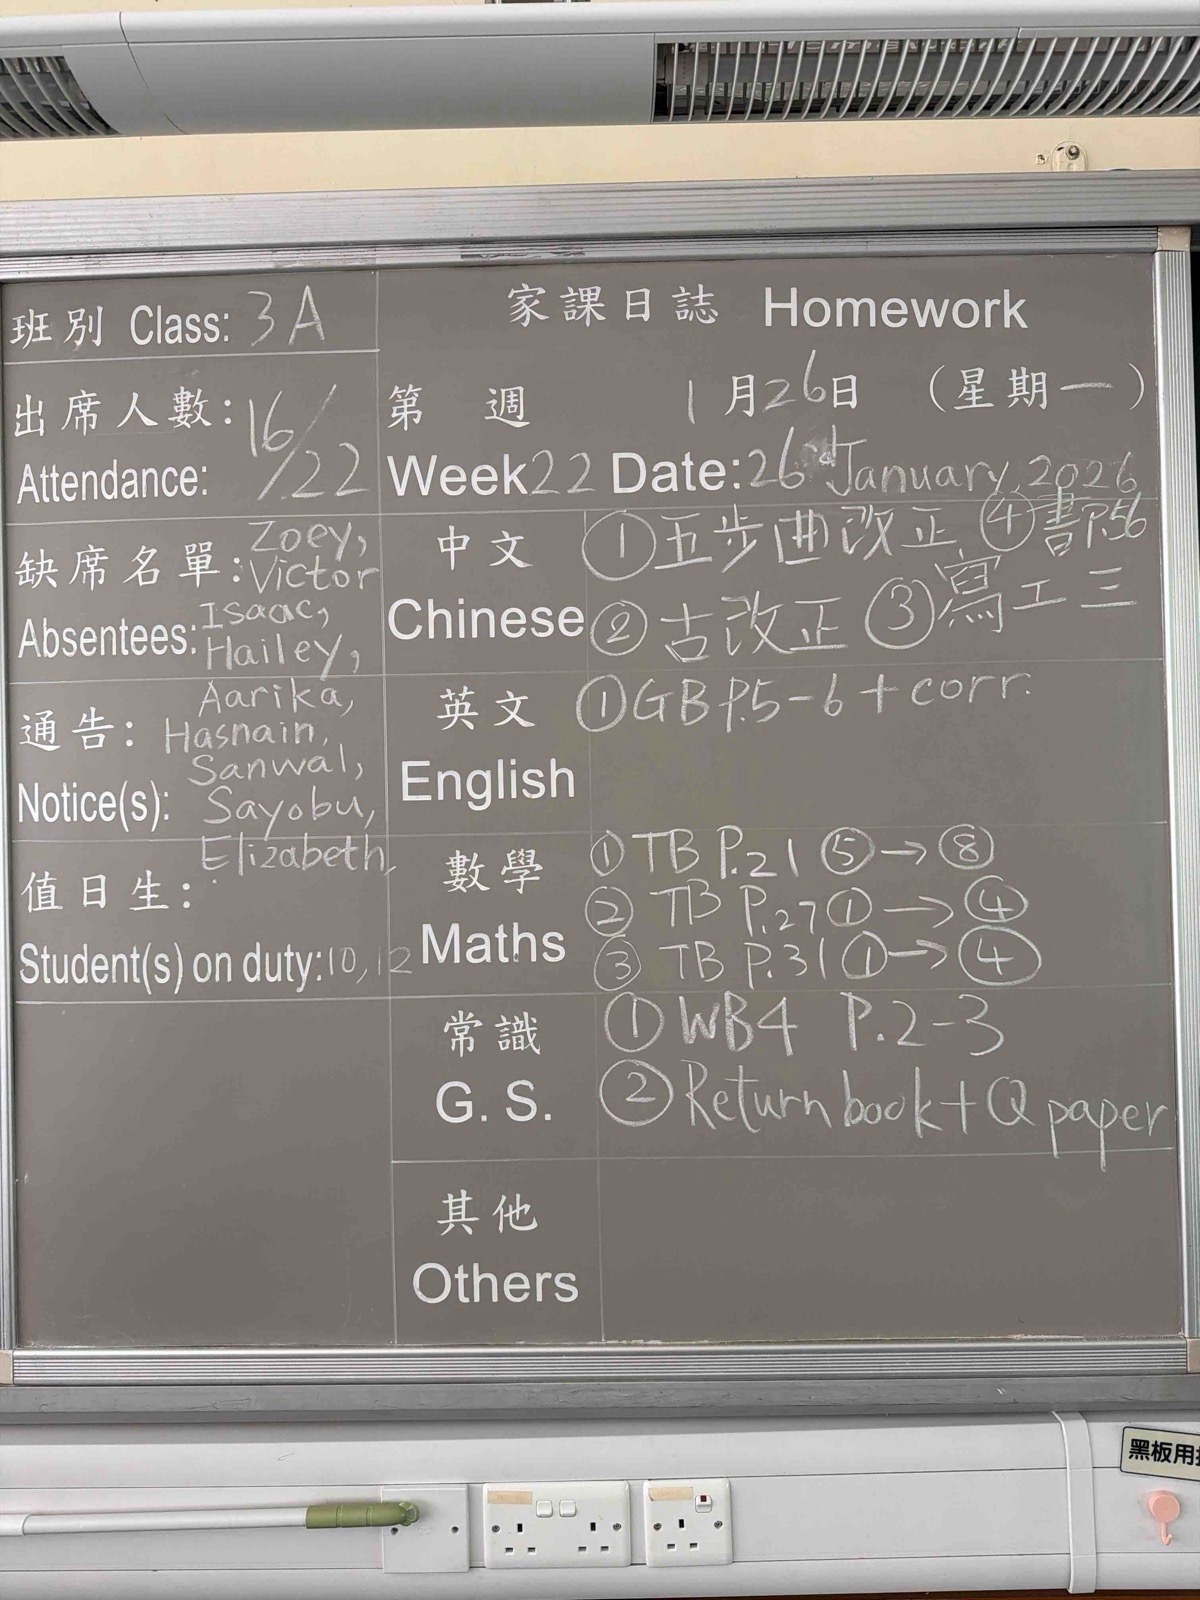 班別 Class: 3A
出席人數: 16/22
Attendance:
缺席名單: Zoey, Victor
Absentees: Isaac, Hailey,
Aarika,
通告: Hasnain,
Sanwal,
Notice(s): Sayobu,
Elizabeth,
值日生:
Student(s) on duty: 10, 12
家課日誌 Homework
第 週 1月26日 (星期一)
Week 22 Date: 26 January, 2026
中文 ① 五步曲改正 ④ 書P.56
Chinese ② 古改正 ③ 寫工三
英文 ① GB P.5-6 + corr.
English
數學 ① TB P.21 ⑤→⑧
② TB P.27 ①→④
Maths ③ TB P.31 ①→④
常識 ① WB4 P.2-3
G. S. ② Return book + Q paper
其他
Others
黑板用